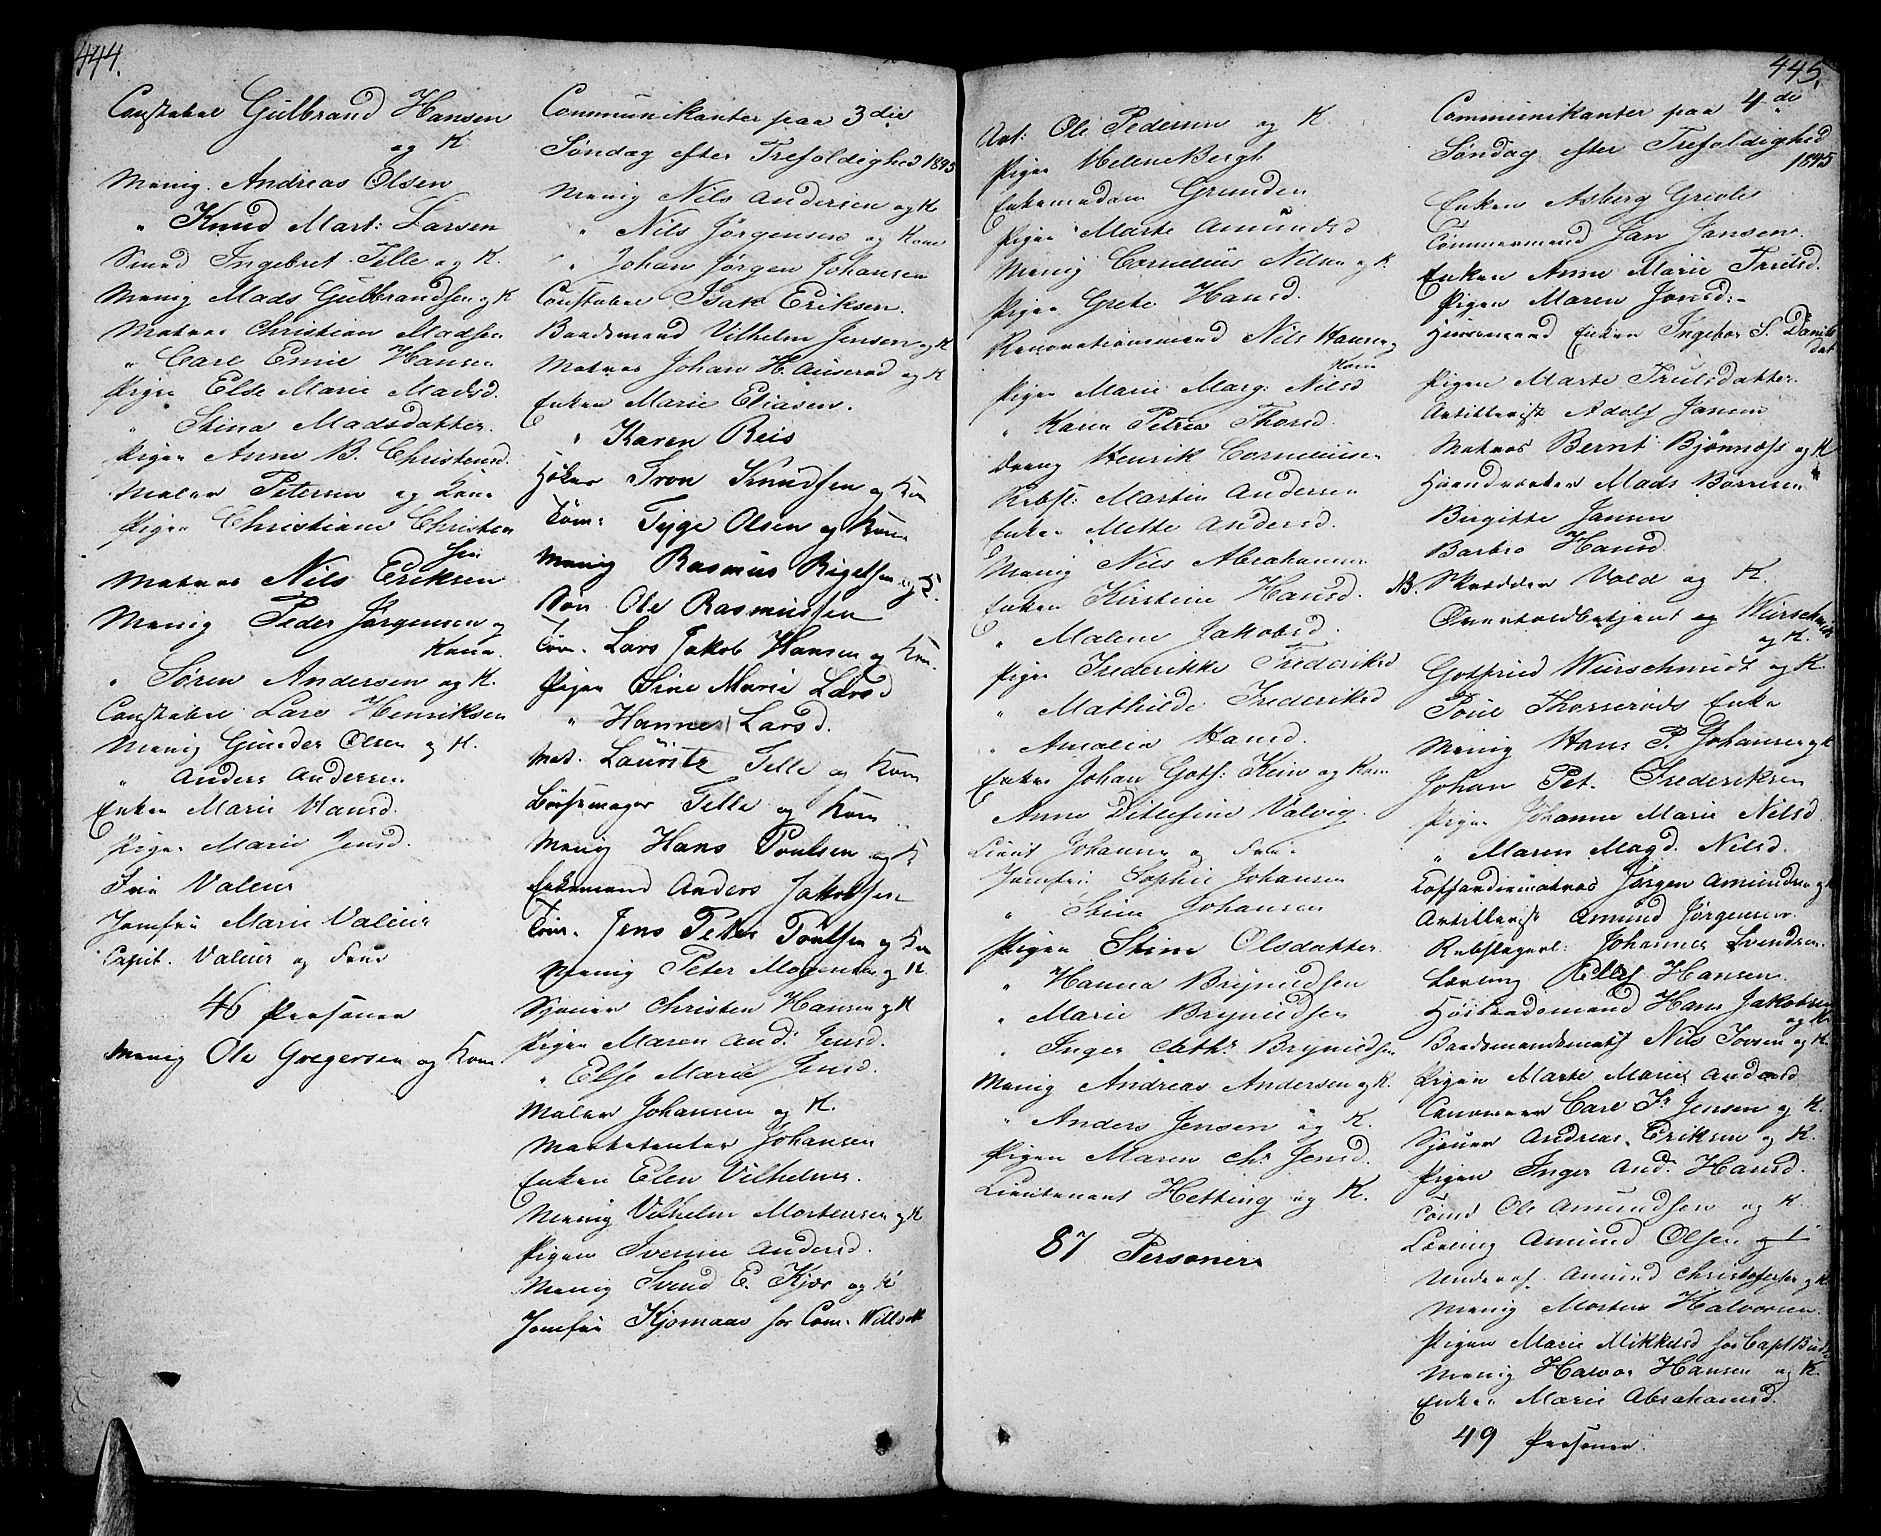 444.
Constabel Gulbrand Hansen
og K
Menig Andreas Olsen
" Knud Mart: Larsen
Smed Ingebret Telle og K.
Menig Mads Gulbrandsen og K
Matros Christian Madsen
" Carl Emil Hansen
Pigen Else Marie Madsd.
" Stina Madsdatter.
Pigen Anne B. Christensd.
Maler Petersen og Kone
Pigen Christiane Christen
sen
Matros Nils Eriksen
Menig Peder Jørgensen og
Kone.
" Søren Andersen og K.
Constabel Lars Henriksen
Menig Gunder Olsen og K.
" Anders Andersen
Enken Marie Hansd.
Pigen Marie Jensd.
Fru Valeur
Jomfru Marie Valeur
Capit. Valeur og Frue
46 Personer
Menig Ole Gregersen og Kone
Communikanter paa 3die
Søndag efter Trefoldighed 1845
Menig Nils Andersen og K
" Nils Jørgensen og Kone
" Johan Jørgen Johansen
Constabel Isak Eriksen.
Baadsmand Vilhelm Jensen og K
Matros Johan H. Auserød og K
Enken Marie Eliasen.
" Karen Reis
Høker Iron Knudsen og Kone
Tøm. Tyge Olsen og Kone
Menig Rasmus Rigelsen og K.
Søn Ole Rasmussen
Tøm. Lars Jakob Hansen og Kone.
Pigen Sine Marie Larsd
" Hanne Larsd.
Mat. Lauritz Telle og Kone
Bøssemager Telle og Kone
Menig Hans Poulsen og K
Enkemand Anders Jakobsen
Tøm. Jens Peter Poulsen og Kone
Menig Peter Mogensen og K
Sjouer Christen Hansen og K
Pigen Maren And: Jensd.
" Else Marie Jensd.
Maler Johansen og K.
Marketenter Johansen
Enken Elen Vilhelms.
Menig Vilhelm Mortensen og K
Pigen Iverine Andersd.
Menig Svend E. Kjær og K
Jomfru Kjomaas hos Com.
445.
Art: Ole Pedersen og K.
Pigen Helene Bergh
Enkemadam Grunden
Pigen Marte Amundsd
Menig Cornelius Nilsen og K.
Pigen Grete Hansd.
Renovationsmand Nils Hansen og
Kone
Pigen Marie Marg: Nilsd
" Karen Petrea Thorsd.
Dreng Henrik Corneliusen
Rebsl: Martin Andersen
Enken Mette Andersd.
Menig Nils Abrahamsen
Enken Kirstine Hansd.
" Malene Jakobsd.
Pigen Frederikke Frederiksd
" Mathilde Frederiksd
" Amalia Hansd.
Enken Johan Gotf: Keim og Kone
Anne Ditlefine Valvig.
Lieut Johansen og Frue.
Jomfru Sophie Johansen
" Stine Johansen
Pigen Stine Olsdatter
" Hanna Brynildsen
" Marie Brynildsen
" Inger Cathr. Brynildsen
Menig Andreas Andersen og K.
" Anders Jensen og K.
Pigen Maren Chr. Jensd.
Lieutenant Hetting og K.
87 Personer
Communikanter paa 4de
Søndag efter Trefoldighed
1845
Enken Asberg
Tømmermand Jan Jansen.
Enken Anne Marie Trulsd.
Pigen Maren Jonsd:
Huusmand Enken Ingebor S. Daniels
dat
Pigen Marte Trulsdatter.
Artillerist Adolf Jansen
Matros Bernt Bjønnæss og K
Haandværker Mads Børresen "
Birgitte Jansen
Barbro Hansd.
NB. Skrædder Vold og K.
Overtoldbetjent og Würschmidt
og K.
Gotfried Würschmidt og K.
Poul Thorserøds Enke
Menig Hans P. Johansen og K
Johan Pet. Frederiksen
Pigen Johanne Marie Nilsd.
" Maren Magd. Nilsd.
Coffardiematros Jørgen Amundsen og K
Artillerist Amund Jørgensen.
Rebslagerl: Johannes Svendsen.
Lærling Ellef Hansen
Høilandsmand Hans Jakobsen
og K
Baadsmandsmat Nils Iversen og K.
Pigen Marte Marie Andersd
Canoneer Carl Fr Jensen og K.
Sjouer Andreas Eriksen og K.
Pigen Inger And. Hansd.
Tømd Ole Amundsen og K.
Lærling Amund Olsen og
Underof. Amund Christofersen og K
Menig Morten Halvorsen.
Pigen Marie Mikkelsd hos Capt
Menig Halvor Hansen og K.
Enken Marie Abrahamsd.
49 Personer.